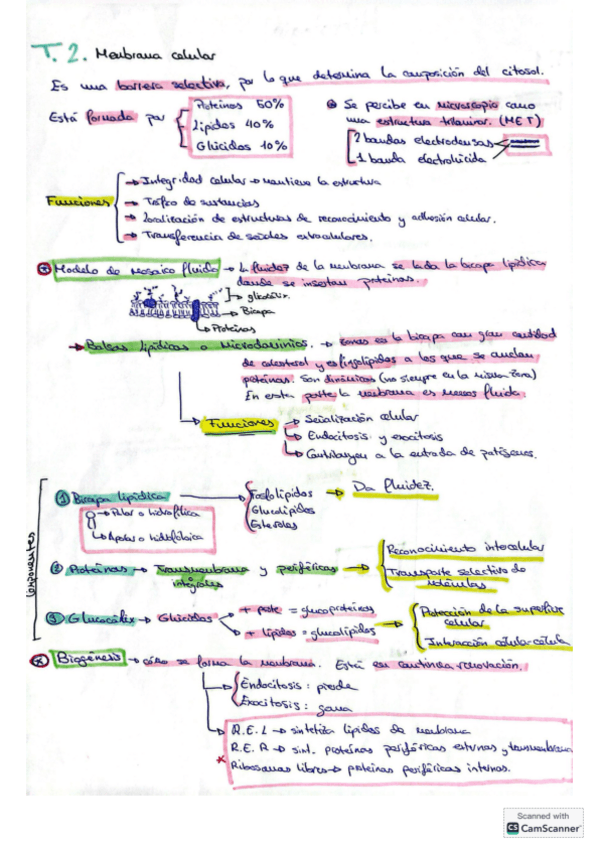 T.2. Membrana celular
Es una barrera selectiva, por lo que determina la composición del citosol.
Está formada por
Proteínas 50%
Lípidos 40%
Glúcidos 10%
Se percibe en microscopio como
una estructura trilaminar. (MET)
2 bandas electrodensas
1 banda electrolúcida
Funciones
Integridad celular → mantiene la estructura
Tráfico de sustancias
Localización de estructuras de reconocimiento y adhesión celular.
Transferencia de señales extracelulares.
Modelo de Mosaico fluido → la fluidez de la membrana se la da la bicapa lipídica
donde se insertan proteínas.
Bicapa
Proteínas
Balsas lipídicas o Microdominios. → zonas en la bicapa con gran cantidad
de colesterol y esfingolípidos a los que se anclan
proteínas. Son dinámicas (no siempre en la misma zona)
En esta parte la membrana es menos fluida.
Funciones
Señalización celular
Endocitosis y exocitosis
Contribuyen a la entrada de patógenos.
Componentes
1 Bicapa lipídica
Polar o hidrofílica
Apolar o hidrofóbica
Fosfolípidos
Glucolípidos
Esteroles
Da fluidez.
2 Proteínas → Transmembrana y periféricas
integrales
Reconocimiento intercelular
Transporte selectivo de
moléculas
3 Glucocálix → Glúcidos
+ prote = glucoproteínas
+ lípidos = glucolípidos
Protección de la superficie
celular
Interacción célula-célula
Biogénesis → cómo se forma la membrana. Está en continua renovación.
Endocitosis: pierde
Exocitosis: gana
R.E.L → sintetiza lípidos de membrana
R.E.R → sint. proteínas periféricas externas y transmembrana
Ribosomas libres → proteínas periféricas internas.
Scanned with
CS CamScanner